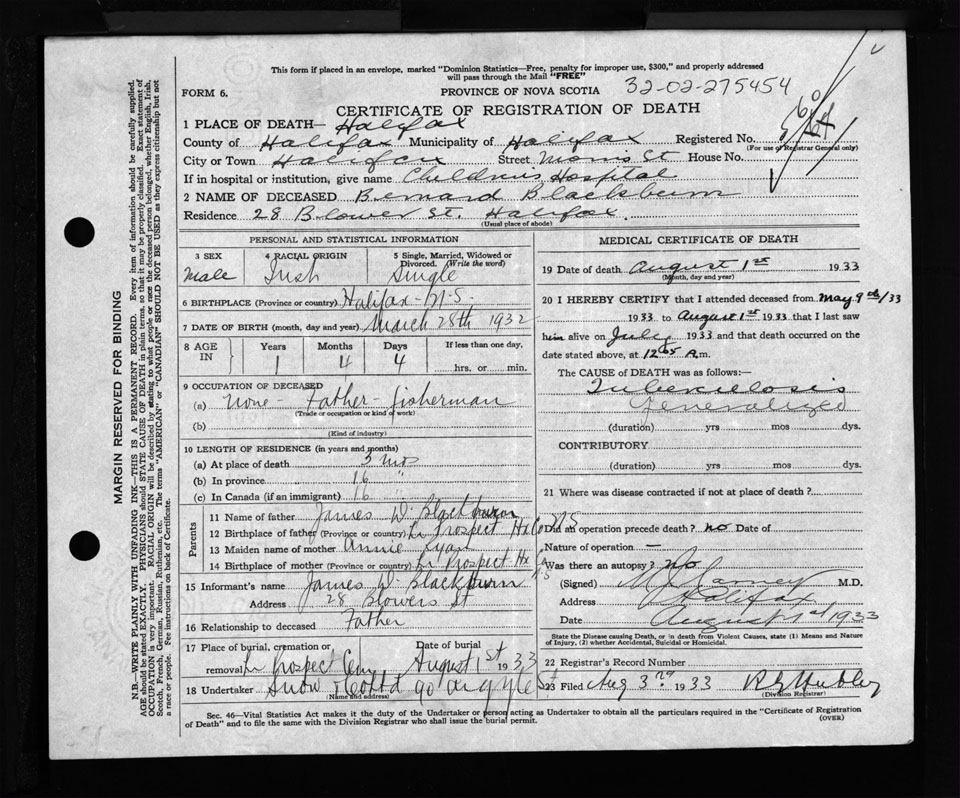 This form if placed in an envelope, marked "Dominion Statistics—Free, penalty for improper use, $300," and properly addressed
will pass through the Mail "FREE"
FORM 6. PROVINCE OF NOVA SCOTIA 32-02-275454
CERTIFICATE OF REGISTRATION OF DEATH
1 PLACE OF DEATH— Halifax
County of Halifax Municipality of Halifax Registered No.
(For use of Registrar General only)
City or Town Halifax Street Morris St House No.
If in hospital or institution, give name Childrens Hospital
2 NAME OF DECEASED Bernard Blackburn
Residence 28 Blower St. Halifax.
(Usual place of abode)
PERSONAL AND STATISTICAL INFORMATION
3 SEX 4 RACIAL ORIGIN 5 Single, Married, Widowed or
Divorced. (Write the word)
Male Irish Single
6 BIRTHPLACE (Province or country) Halifax-N.S.
7 DATE OF BIRTH (month, day and year) March 28th 1932
8 AGE IN Years Months Days If less than one day,
1 4 4 hrs. or min.
9 OCCUPATION OF DECEASED
(a) None - Father - fisherman
(Trade or occupation or kind of work)
(b)
(Kind of industry)
10 LENGTH OF RESIDENCE (in years and months)
(a) At place of death 3 mos
(b) In province 16 "
(c) In Canada (if an immigrant) 16 "
Parents
11 Name of father James W. Blackburn
12 Birthplace of father (Province or country) Lr Prospect Hx Co NS
13 Maiden name of mother Annie Ryan
14 Birthplace of mother (Province or country) Lr Prospect Hx
15 Informant's name James W. Blackburn
Address 28 Blowers St
16 Relationship to deceased Father
17 Place of burial, cremation or Date of burial
removal Lr Prospect Cem August 1st 1933
18 Undertaker Snow & Co Ltd 90 Argyle St
(Name and address)
MEDICAL CERTIFICATE OF DEATH
19 Date of death August 1st 1933
(Month, day and year)
20 I HEREBY CERTIFY that I attended deceased from May 9th/33
1933 to August 1st 1933 that I last saw
him alive on July 1933 and that death occurred on the
date stated above, at 12.05 A.m.
The CAUSE of DEATH was as follows:—
Tuberculosis
Generalized
(duration) yrs mos dys.
CONTRIBUTORY
(duration) yrs mos dys.
21 Where was disease contracted if not at place of death?
Did an operation precede death? no Date of
Nature of operation —
Was there an autopsy? No
(Signed) M.D.
Address Halifax
Date August 1st 1933
State the Disease causing Death, or in death from Violent Causes, state (1) Means and Nature
of Injury, (2) whether Accidental, Suicidal or Homicidal.
22 Registrar's Record Number
23 Filed Aug 3rd 1933
(Division Registrar)
Sec. 46—Vital Statistics Act makes it the duty of the Undertaker or person acting as Undertaker to obtain all the particulars required in the "Certificate of Registration
of Death" and to file the same with the Division Registrar who shall issue the burial permit. (OVER)
MARGIN RESERVED FOR BINDING
N.B.—WRITE PLAINLY WITH UNFADING INK—THIS IS A PERMANENT RECORD. Every item of information should be carefully supplied.
AGE should be stated EXACTLY. PHYSICIANS should STATE CAUSE OF DEATH in plain terms, so that it may be properly classified. Exact statement of
OCCUPATION is very important. RACIAL ORIGIN will be described by stating to what people or race the deceased person belonged, whether English, Irish,
Scotch, French, German, Russian, Ruthenian, etc. The terms "AMERICAN" or "CANADIAN" SHOULD NOT BE USED as they express citizenship but not
a race or people. See instructions on back of Certificate.